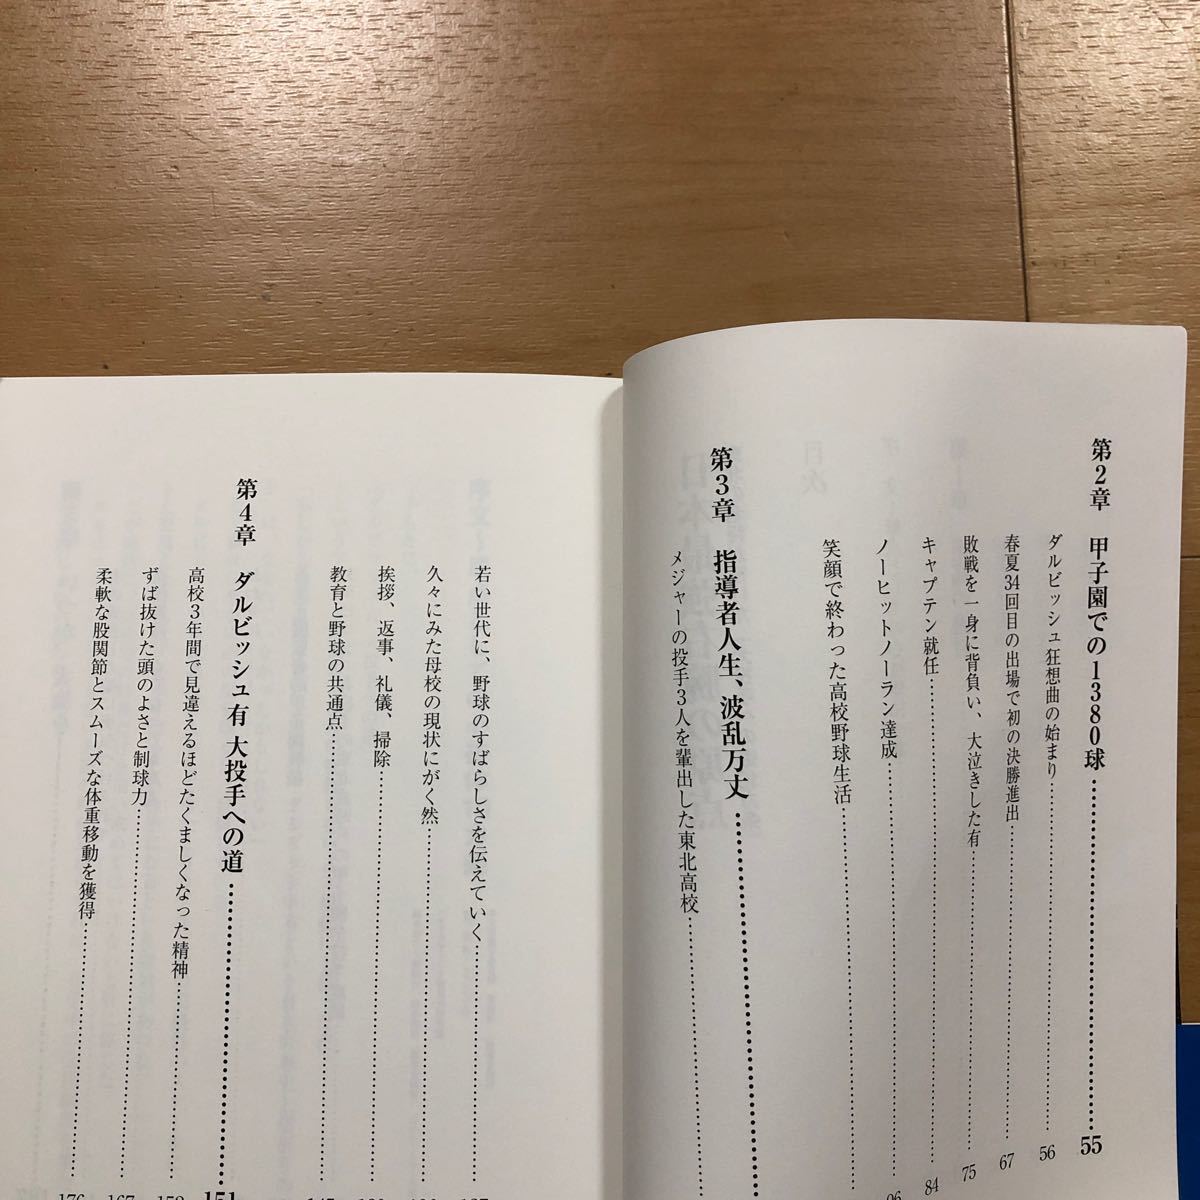 第2章 甲子園での1380球 55
ダルビッシュ狂想曲の始まり 56
春夏34回目の出場で初の決勝進出 67
敗戦を一身に背負い、大泣きした有 75
キャプテン就任 84
ノーヒットノーラン達成
笑顔で終わった高校野球生活
第3章 指導者人生、波乱万丈
メジャーの投手3人を輩出した東北高校
若い世代に、野球のすばらしさを伝えていく
久々にみた母校の現状にがく然
挨拶、返事、礼儀、掃除
教育と野球の共通点
第4章 ダルビッシュ有 大投手への道 151
高校3年間で見違えるほどたくましくなった精神
ずば抜けた頭のよさと制球力
柔軟な股関節とスムーズな体重移動を獲得